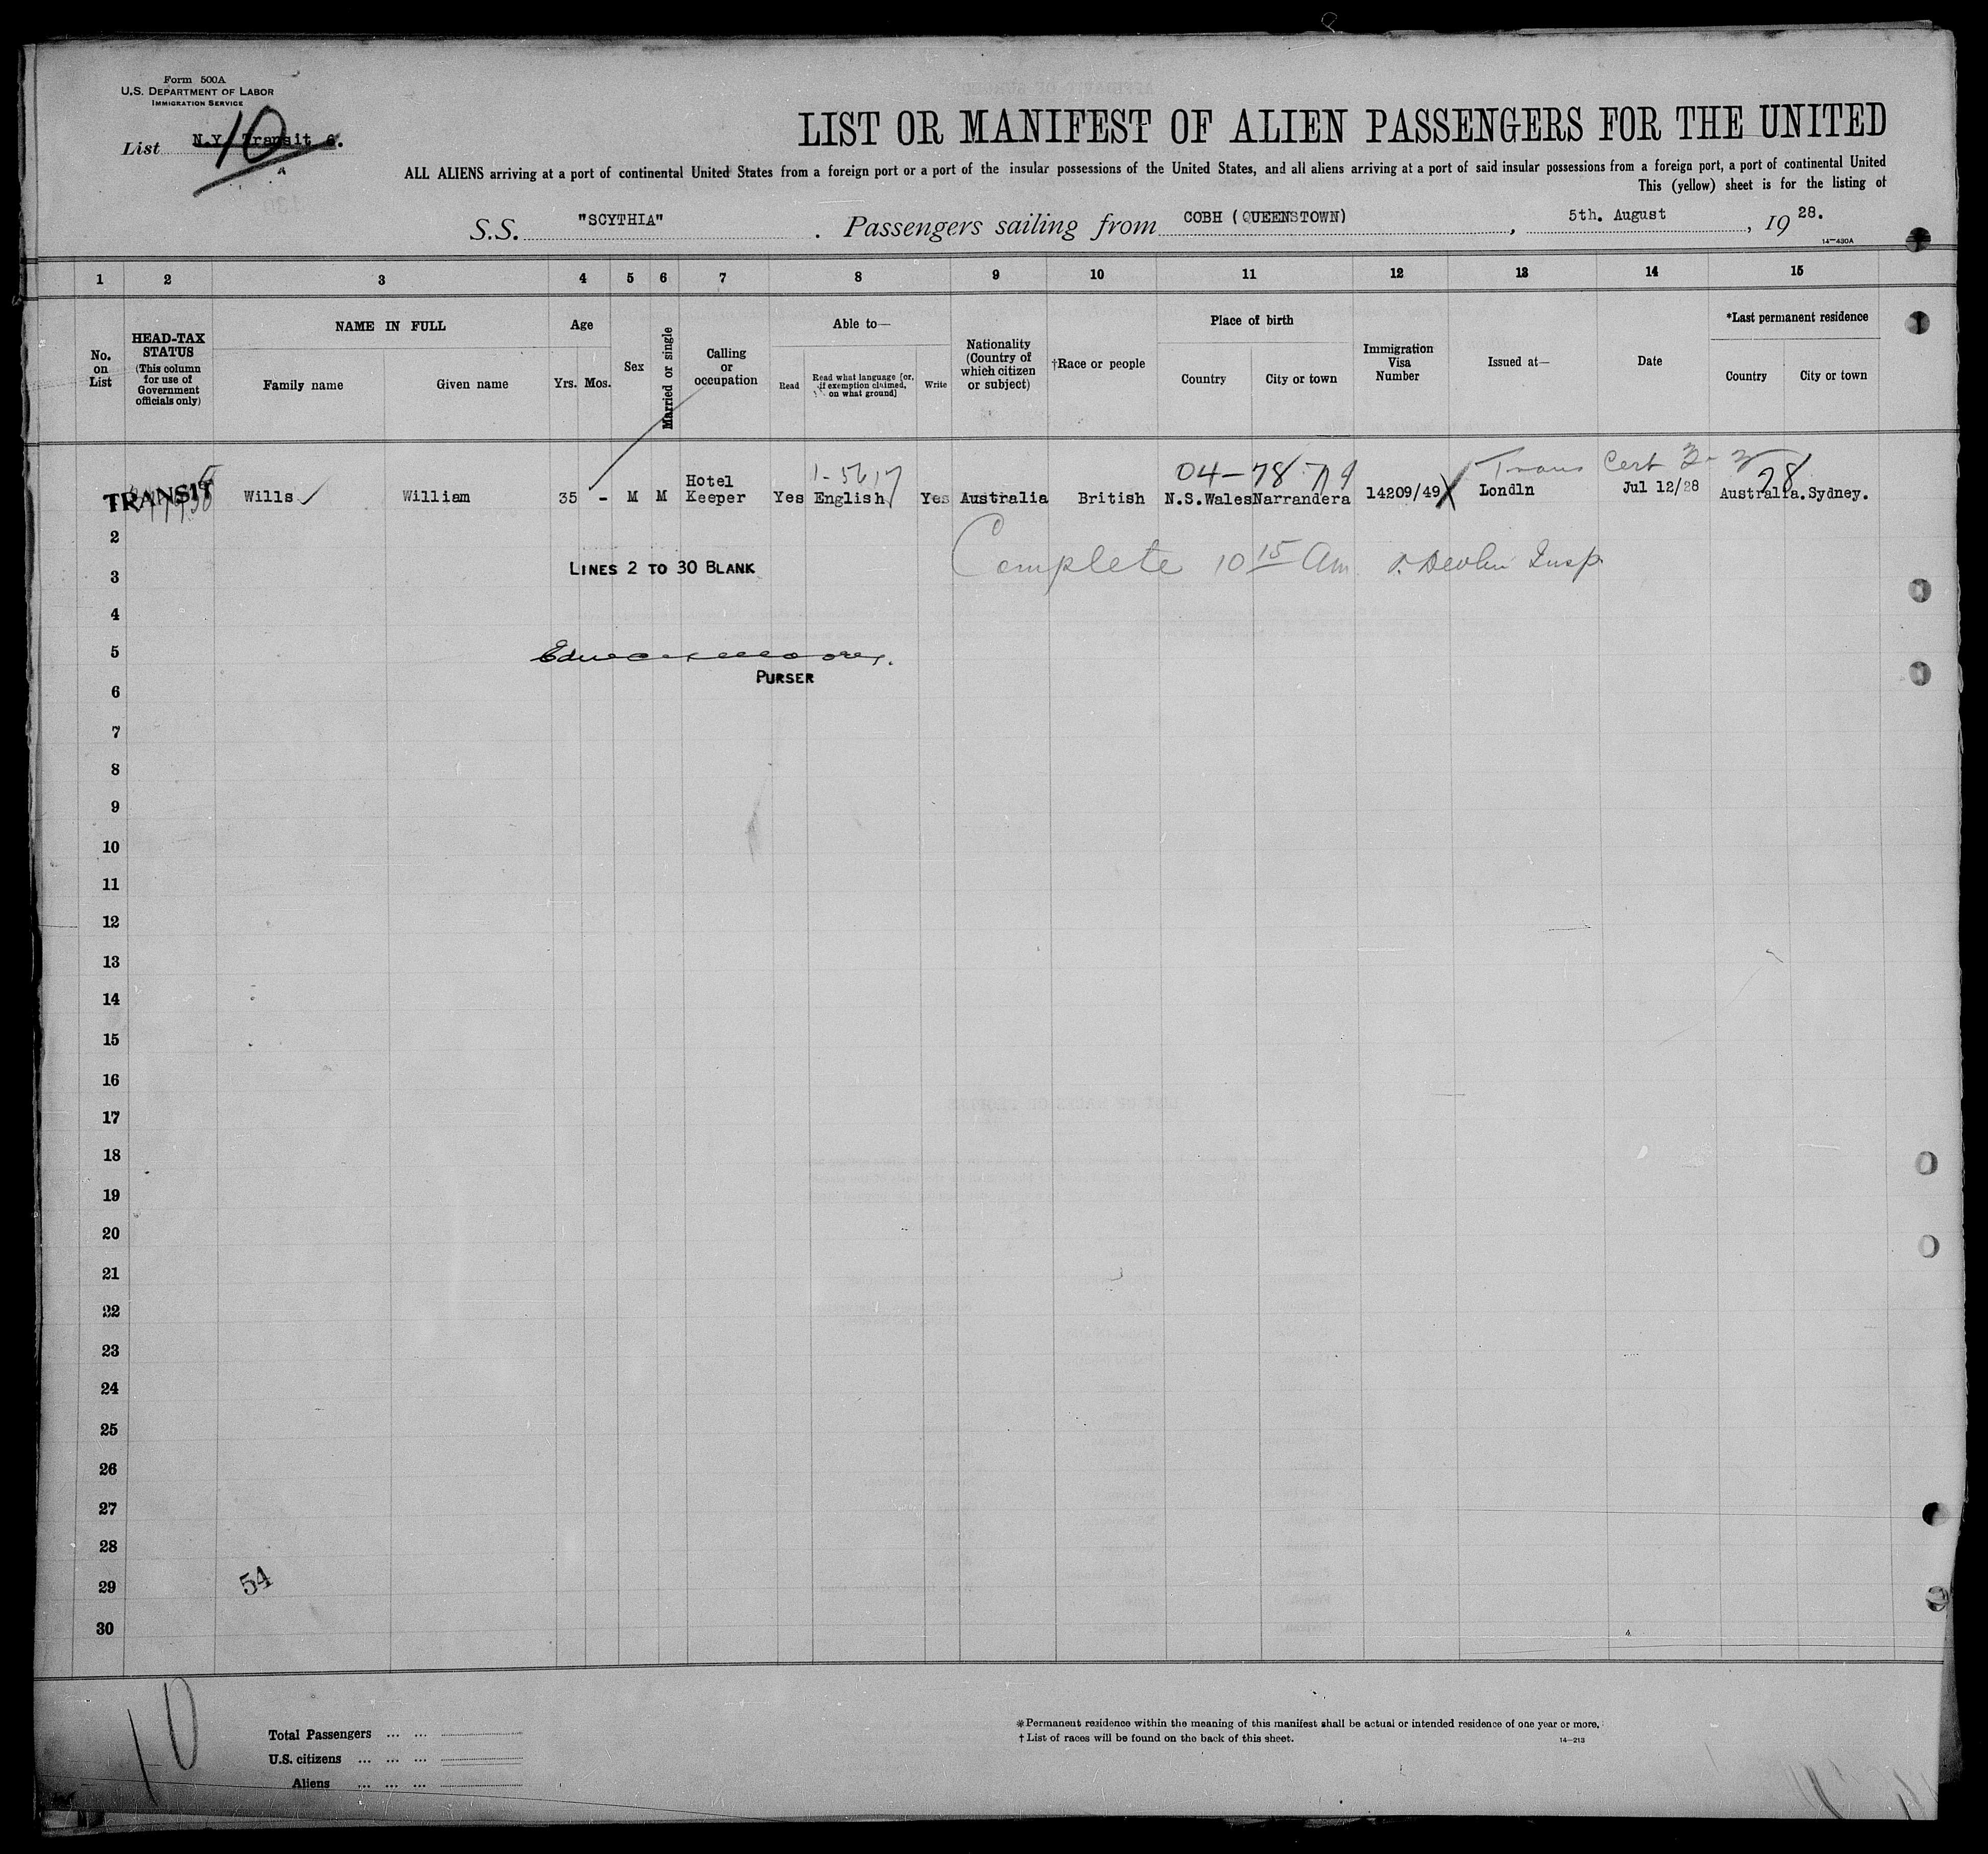 Form 500A
U.S. DEPARTMENT OF LABOR
IMMIGRATION SERVICE
List N.Y. Transit 6. 10
LIST OR MANIFEST OF ALIEN PASSENGERS FOR THE UNITED
ALL ALIENS arriving at a port of continental United States from a foreign port or a port of the insular possessions of the United States, and all aliens arriving at a port of said insular possessions from a foreign port, a port of continental United
This (yellow) sheet is for the listing of
S.S. "SCYTHIA" . Passengers sailing from COBH (QUEENSTOWN), 5th. August, 19 28.
14-430A
1 2 3 4 5 6 7 8 9 10 11 12 13 14 15
No. on List
HEAD-TAX STATUS
(This column for use of Government officials only)
NAME IN FULL
Family name Given name
Age
Yrs. Mos.
Sex
Married or single
Calling or occupation
Able to—
Read
Read what language [or, if exemption claimed, on what ground]
Write
Nationality (Country of which citizen or subject)
†Race or people
Place of birth
Country City or town
Immigration Visa Number
Issued at—
Date
*Last permanent residence
Country City or town
04-78 Trans Cert 28
TRANSIT Wills William 35 - M M Hotel Keeper Yes English Yes Australia British N.S.Wales Narrandera 14209/49 Londln Jul 12/28 Australia. Sydney.
2
Complete 10 15 Am Insp.
LINES 2 TO 30 BLANK
3
4
5
PURSER
6
7
8
9
10
11
12
13
14
15
16
17
18
19
20
21
22
23
24
25
26
27
28
54
29
30
10
Total Passengers ... ...
U.S. citizens ... ... ...
Aliens ... ... ...
*Permanent residence within the meaning of this manifest shall be actual or intended residence of one year or more.
†List of races will be found on the back of this sheet.
14-213